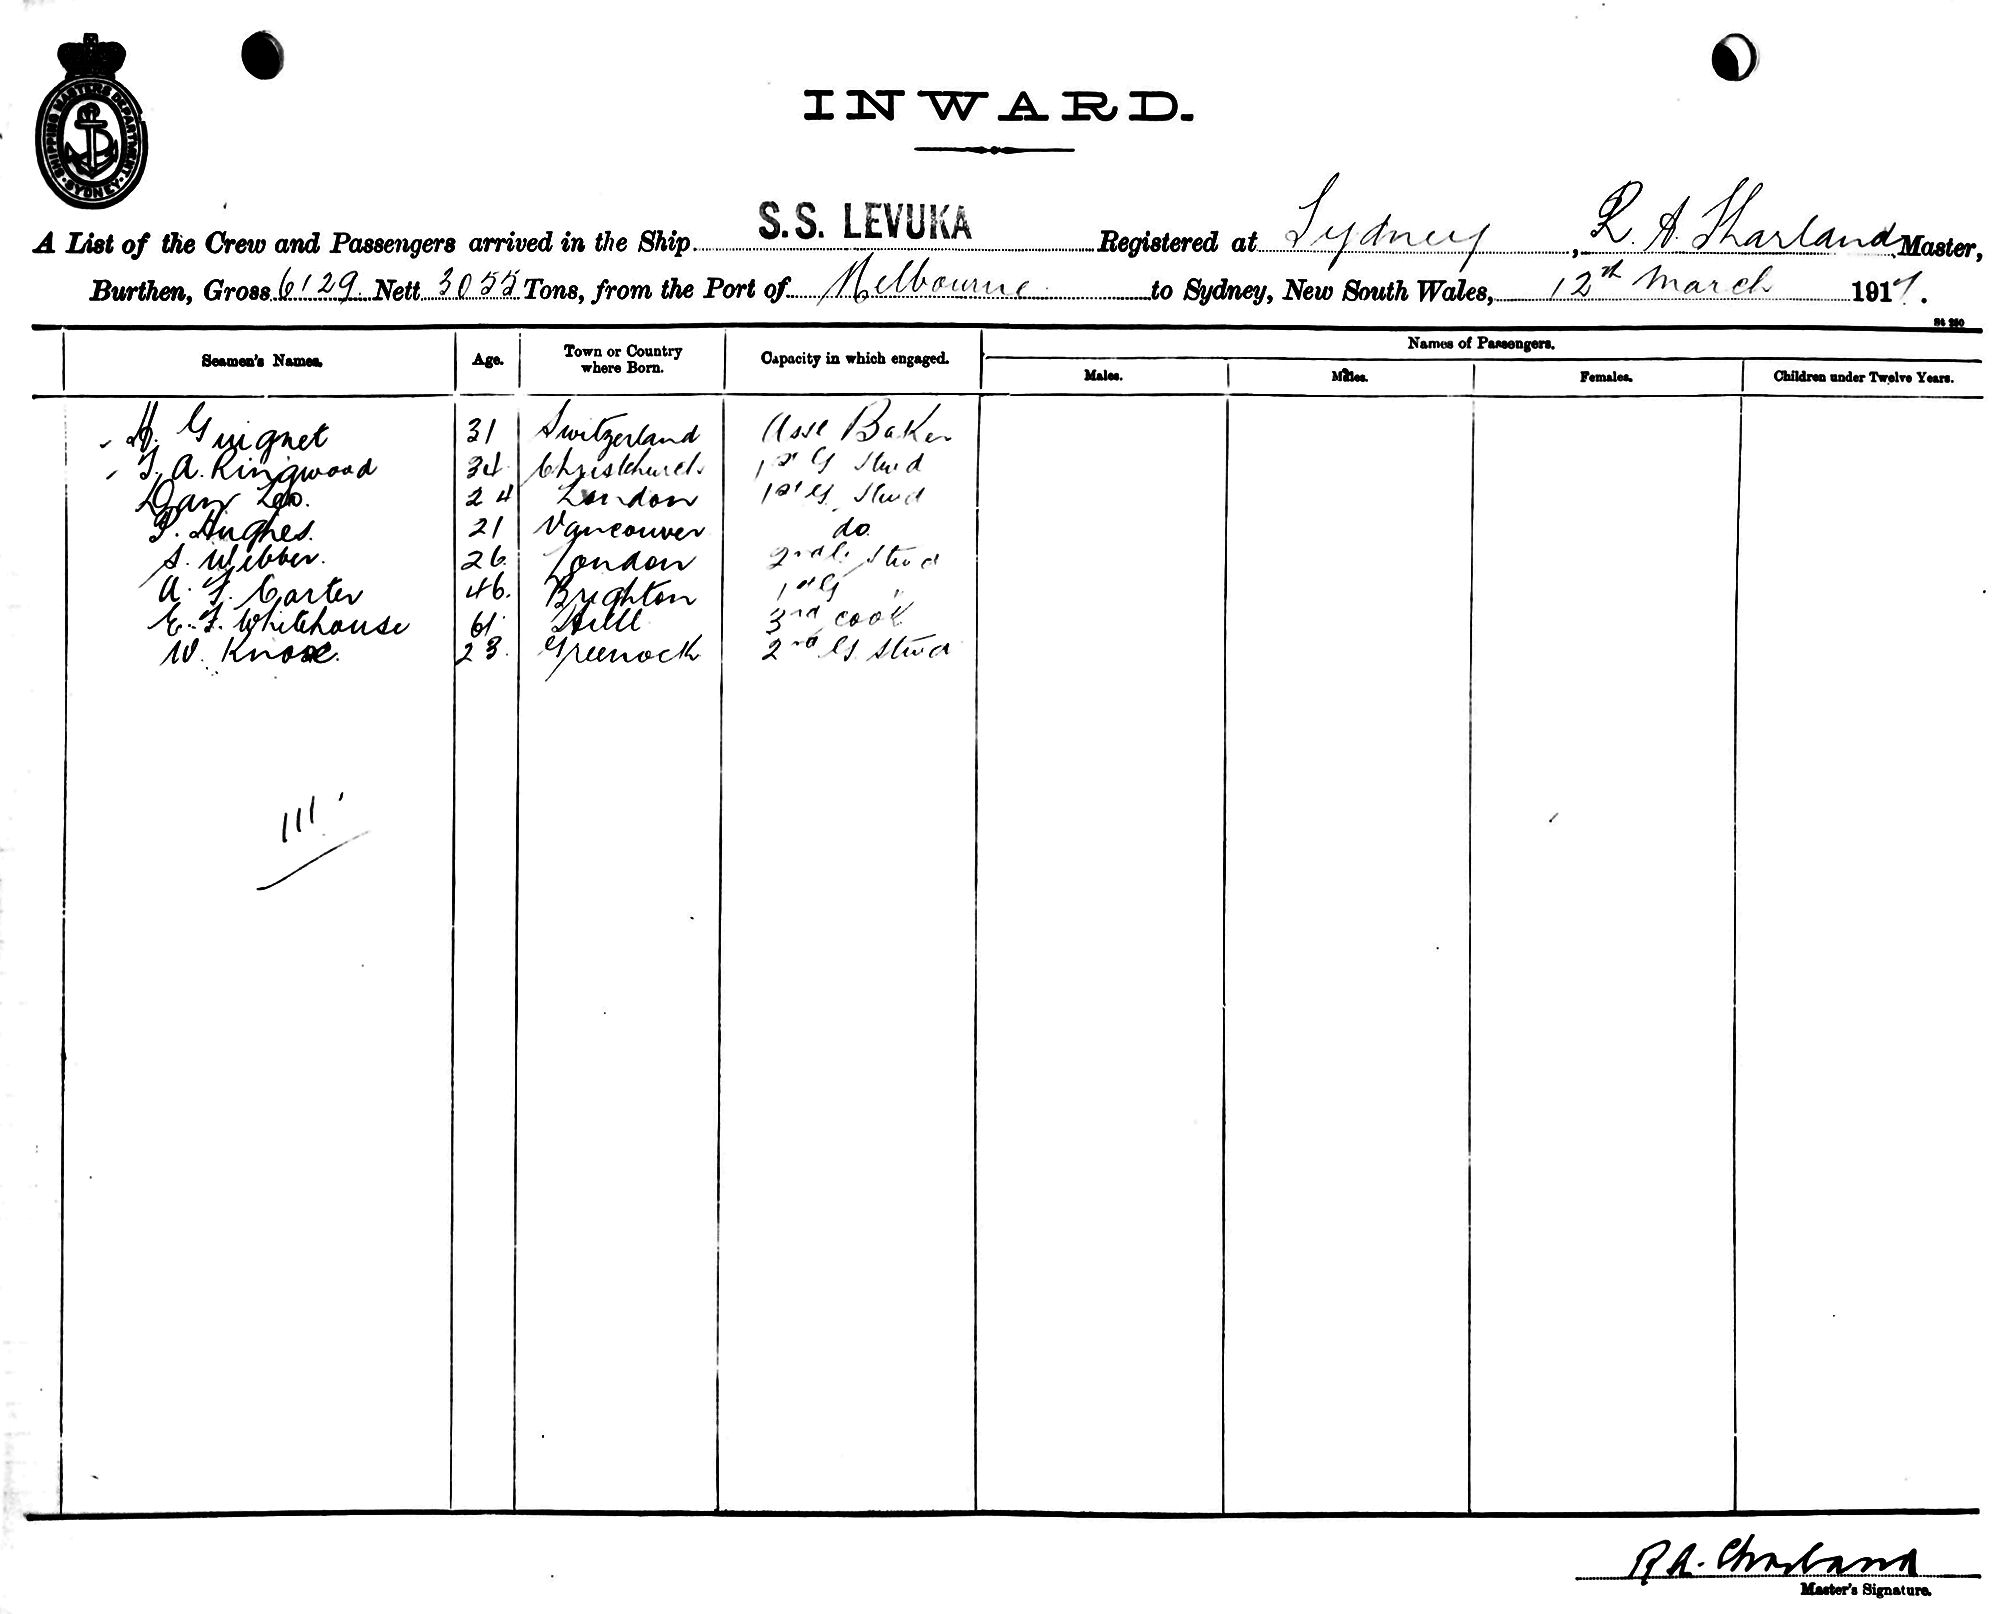 SHIPPING MASTERS DEPARTMENT SYDNEY
INWARD.
A List of the Crew and Passengers arrived in the Ship S.S. LEVUKA Registered at Sydney, R. A. Tharland Master,
Burthen, Gross 6129 Nett 3055 Tons, from the Port of Melbourne to Sydney, New South Wales, 12th March 1917.
Names of Passengers.
Seamen's Names. Age. Town or Country where Born. Capacity in which engaged. Males. Males. Females. Children under Twelve Years.
H. Guignet 31 Switzerland Asst Baker
T. A. Ringwood 34 Christchurch 1st G Stwd
Dan Leo. 24 London 1st G. Stwd
P. Hughes. 21 Vancouver do
S. Webber. 26 London 2nd G. Stwd
A. F. Carter 46. Brighton 1st G "
E. F. Whitehouse 61 Hull 3rd cook
W. Knox. 23. Greenock 2nd G. Stwd
111
R A.
Master's Signature.